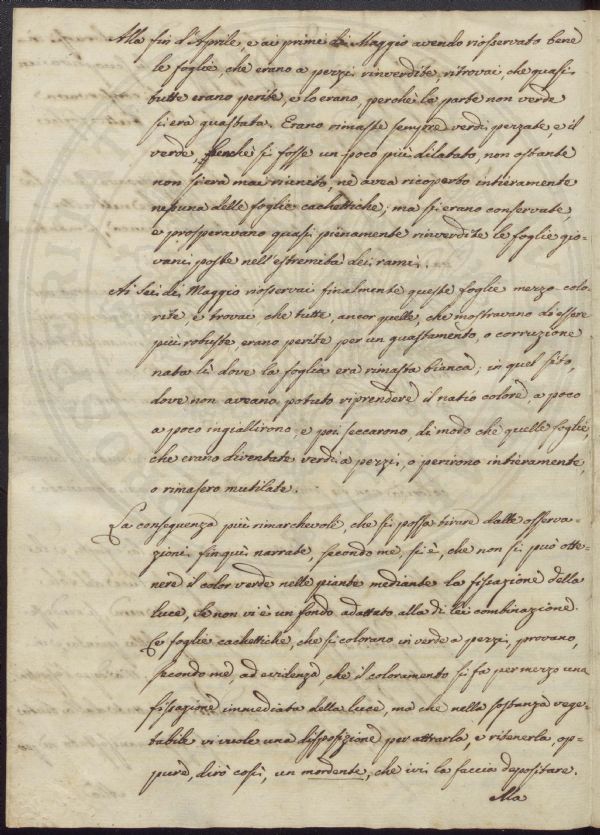 Alla fin d'Aprile, e ai primi di Maggio avendo riosservato bene
le foglie, che erano a pezzi rinverdite, ritrovai, che quasi
tutte erano perite, e lo erano, perchè la parte non verde
si era guastata. Erano rimaste sempre verdi pezzate, e il
verde benchè si fosse un poco più dilatato, non ostante
non si era mai riunito, nè avea ricoperto intieramente
nessuna delle foglie cachettiche; ma si erano conservate,
e prosperavano quasi pienamente rinverdite le foglie gio-
vani poste nell'estremità dei rami.
Ai sei di Maggio riosservai finalmente queste foglie mezzo colo-
rite, e trovai che tutte, ancor quelle, che mostravano di essere
più robuste erano perite per un guastamento, o corruzione
nata lì dove la foglia era rimasta bianca; in quel sito,
dove non aveano potuto riprendere il natio colore, a poco
a poco ingiallirono, e poi seccarono, di modo che quelle foglie,
che erano diventate verdi a pezzi, o perirono intieramente,
o rimasero mutilate.
La conseguenza più rimarchevole, che si possa tirare dalle osserva-
zioni finquì narrate, secondo me, si è, che non si può otte-
nere il color verde nelle piante mediante la fissazione della
luce, se non vi è un fondo adattato alla di lei combinazione.
Le foglie cachettiche, che si colorano in verde a pezzi, provano,
secondo me, ad evidenza, che il coloramento si fa per mezzo una
fissazione immediata della luce, ma che nella sostanza vege-
tabile vi vuole una disposizione per attrarla, e ritenerla, op-
pure, dirò così, un mordente, che ivi la faccia depositare.
Ma